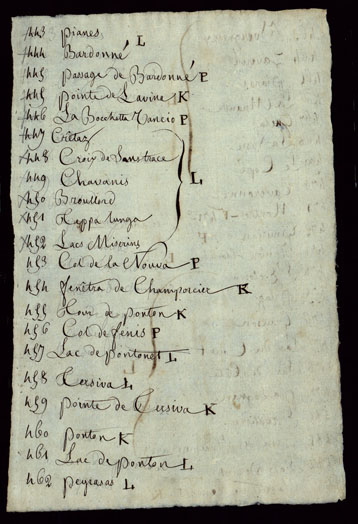 443 pianes L
444 Bardonné
445 Passage de Bardonné P
445 Pointe de Lavine K
446 La Bocchetta Rancio P
447 Crêtaz
448 Croix de Sanstrace
449 Chavanis L
450 Broullord
451 Rappa lunga
452 Lacs Miserins
453 Col de la Nouva P
454 fenêtra de Champorcier K
455 Hour de ponton K
456 Col de fénis P
457 Lac de pontonet L
458 Cursiva L
459 pointe de Cursiva K
460 ponton K
461 Lac de ponton L
462 peyrasas L